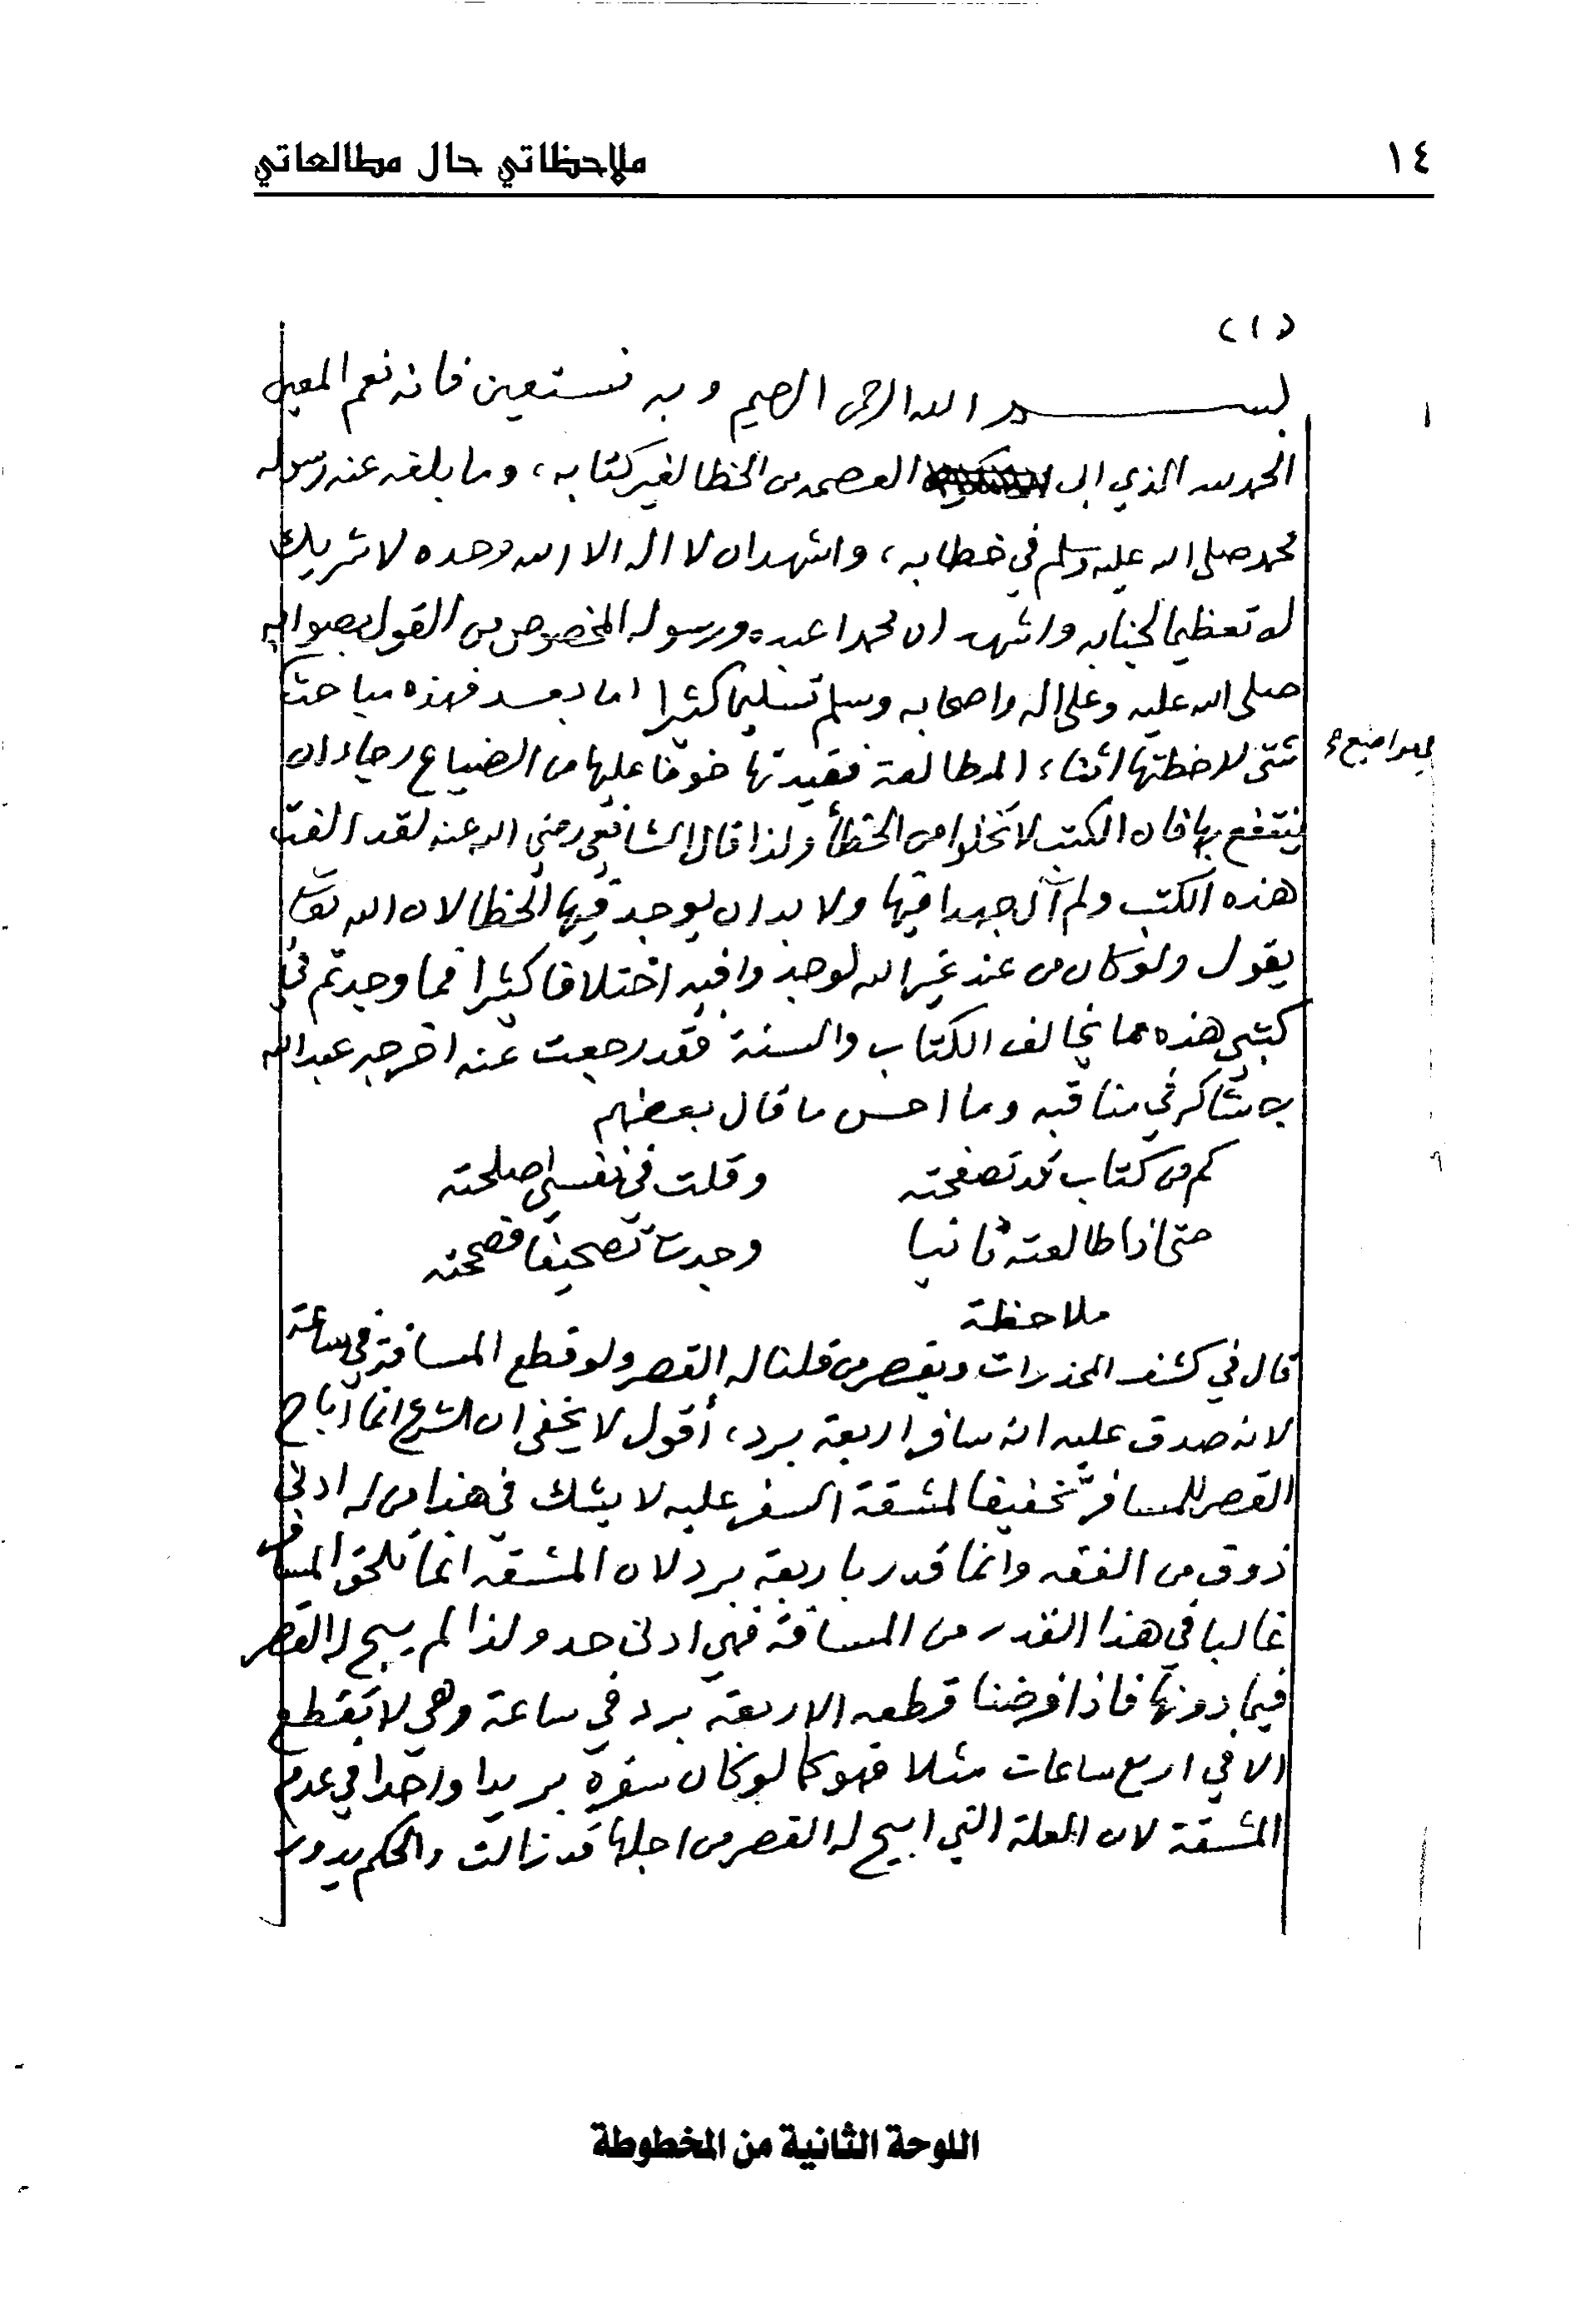 ١٤
ملاحظاتي حال مطالعاتي
(١)
بسم الله الرحمن الرحيم وبه نستعين فانه نعم المعين
الحمد لله الذي ابى العصمه من الخطا لغير كتابه، وما بلغه عنه رسوله
محمد صلى الله عليه وسلم في خطابه، واشهد ان لا اله الا الله وحده لا شريك
له تعظيما لجنابه واشهد ان محمدا عبده ورسوله المخصوص من القول بصوابه
صلى الله عليه وعلى اله واصحابه وسلم تسليما كثيرا اما بعد فهذه مباحث
شتى لاحظتها اثناء المطالعة فقيدتها خوفا عليها من الضياع رجاء ان
ينتفع بها فان الكتب لا تخلوا من الخطأ ولذا قال الشافعي رضي الله عنه لقد الفت
هذه الكتب ولم آل جهدا فيها ولا بد ان يوجد فيها الخطا لان الله تعالى
يقول ولو كان من عند غير الله لوجدوا فيه اختلافا كثيرا فما وجدتم في
كتبي هذه مما يخالف الكتاب والسنة فقد رجعت عنه اخرجه عبد الله
بن شاكر في مناقبه وما احسن ما قال بعضهم
كم من كتاب قد تصفحته وقلت في نفسي اصلحته
حتى اذا طالعته ثانيا وجدت تصحيفا فصححته
ملاحظة
قال في كشف المخدرات ويقصر من قلنا له القصر ولو قطع المسافة في ساعة
لانه صدق عليه انه سافر اربعة برد، أقول لا يخفى ان الشرع انما اباح
القصر للمسافر تخفيفا لمشقة السفر عليه لا يشك في هذا من له ادنى
ذوق من الفقه وانما قدر باربعة برد لان المشقه انما تلحق المسافر
غالبا في هذا القدر من المسافة فهي ادنى حد ولذا لم يبح له القصر
فيما دونها فاذا فرضنا قطعه الاربعة برد في ساعة وهي لا تقطع
الا في اربع ساعات مثلا فهو كما لو كان سفره بريدا واحدا في عدم
المشقة لان العلة التي ابيح له القصر من اجلها قد زالت والحكم يدور
اللوحة الثانية من المخطوطة